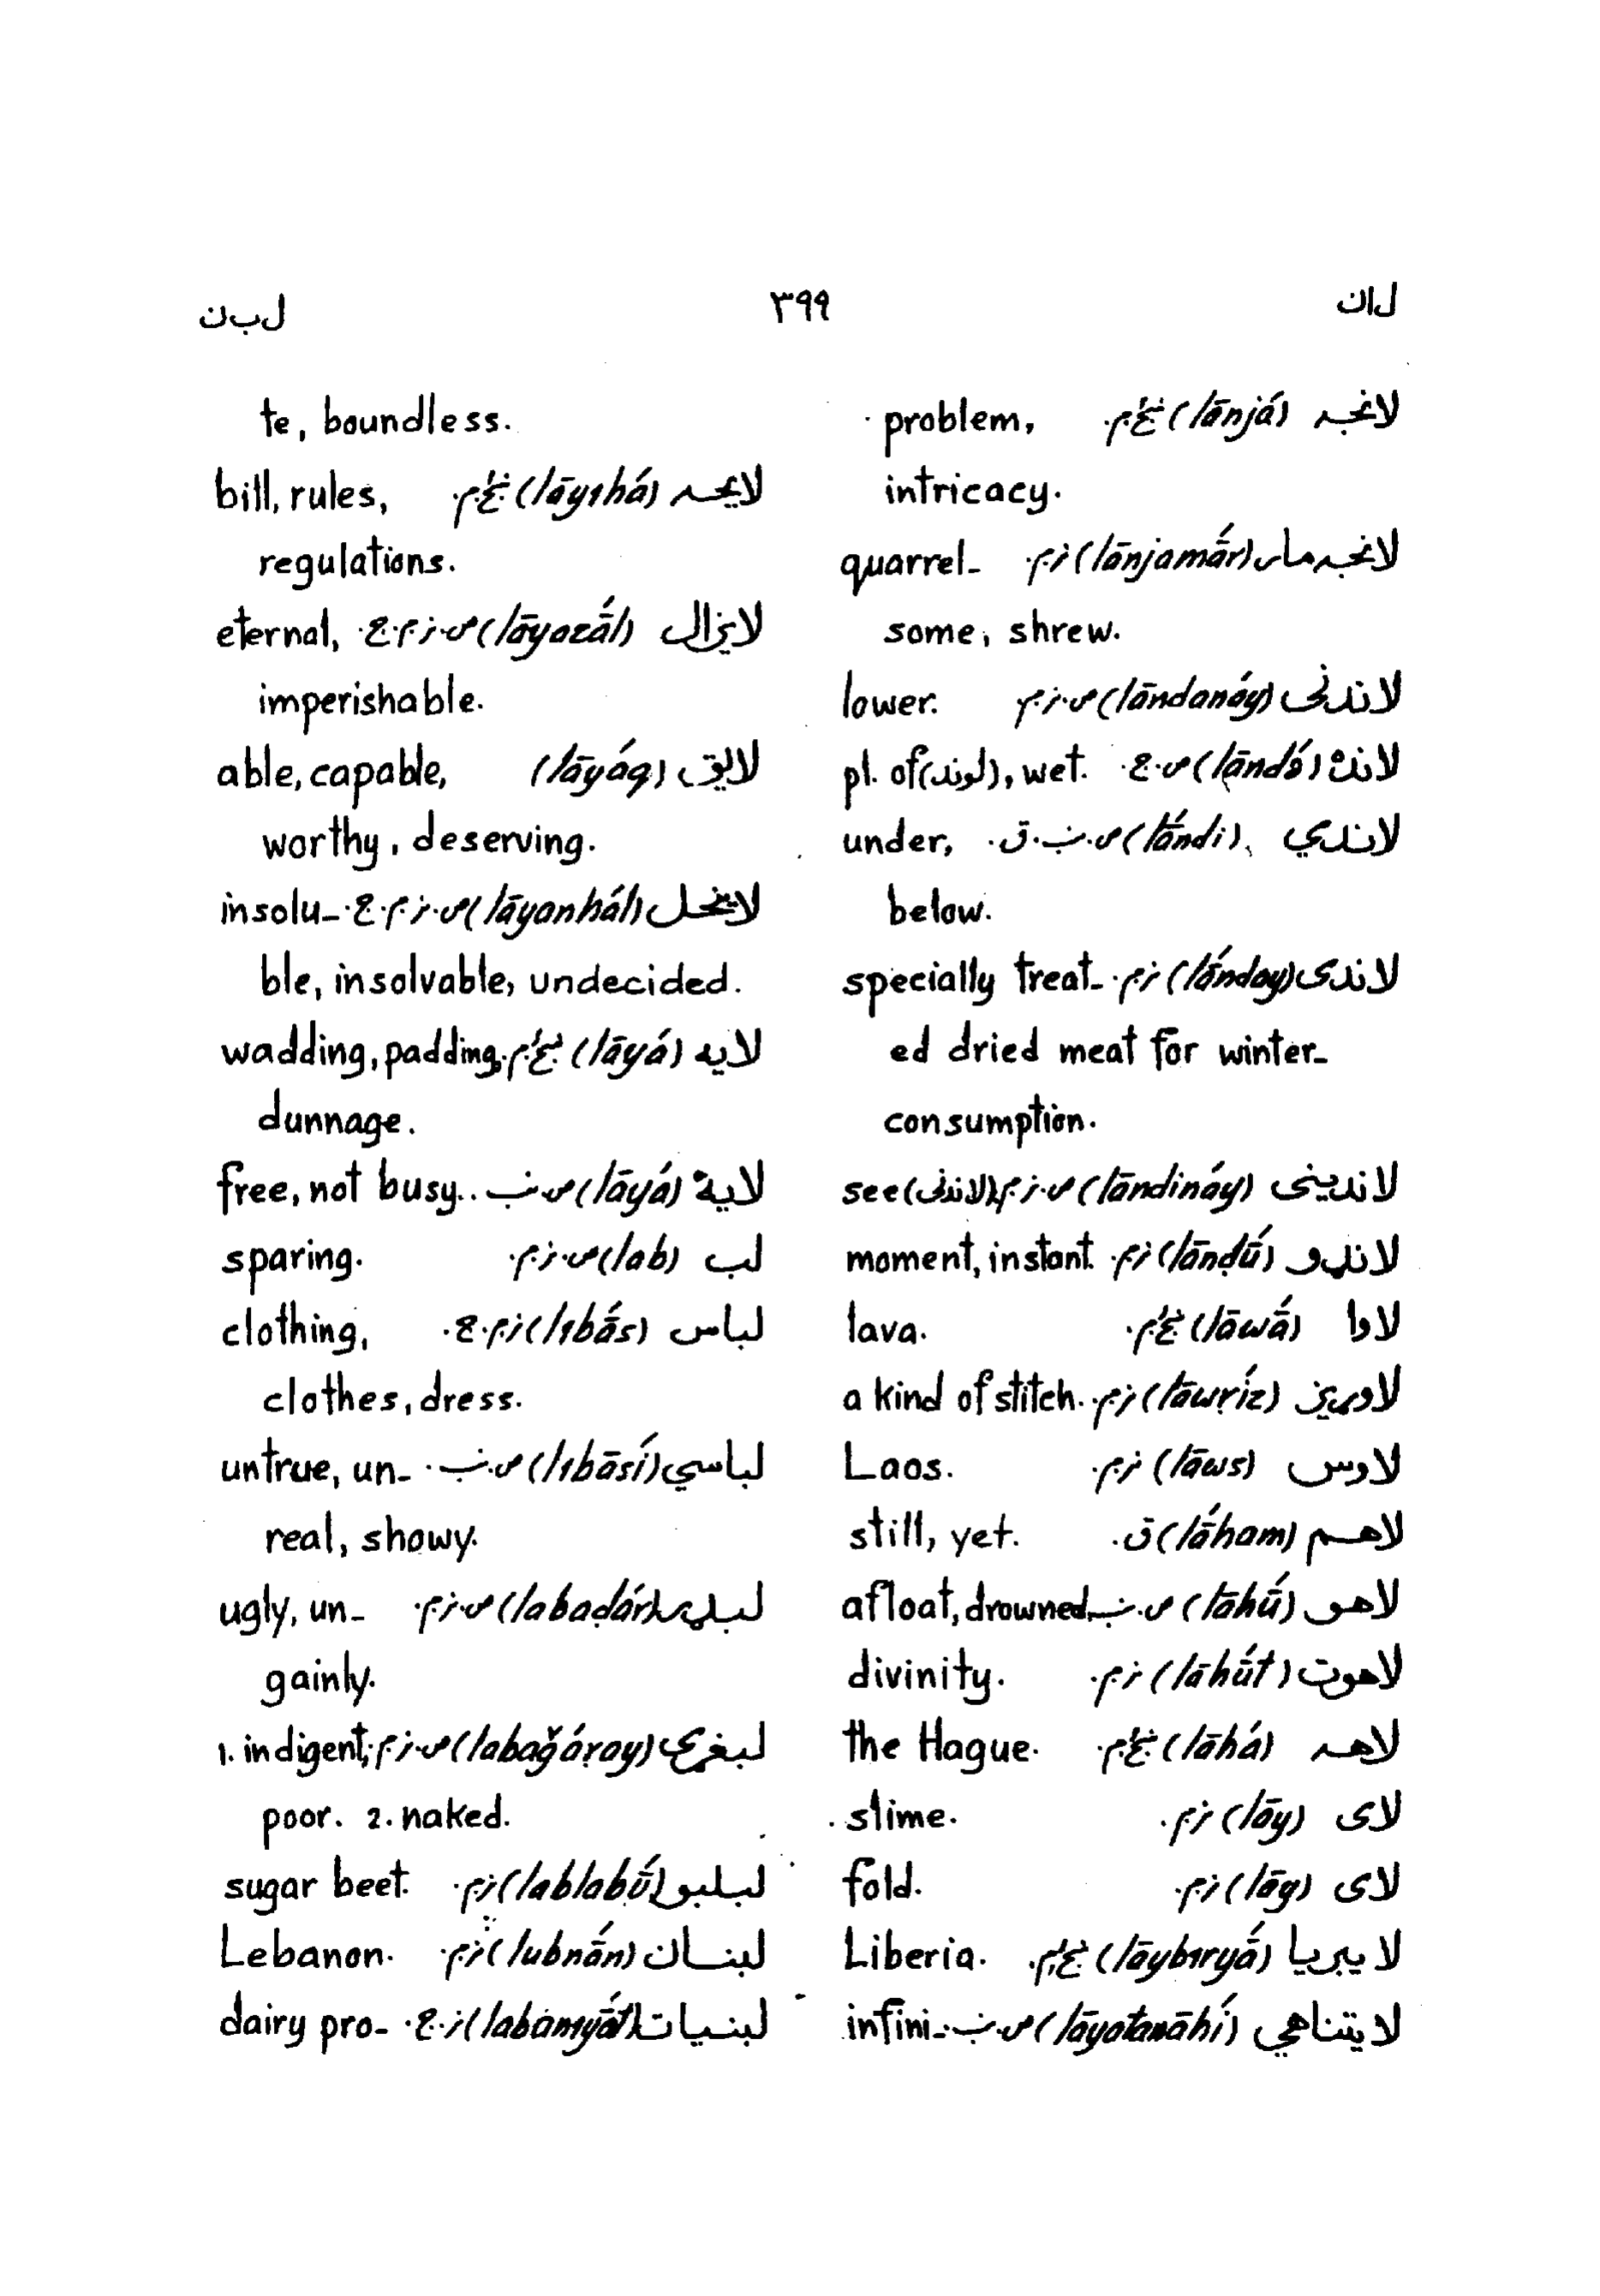 لان ٣٩٩ لبن
لانجه (lānjá) غ.م. problem,
intricacy.
لانجه‌مار (lānjamā́r) ز.م. quarrel-
some, shrew.
لاندنی (lāndanáy) ص.ز.م. lower.
لانده (lāndǝ́) ص.ج. pl. of (لوند), wet.
لاندي (lā́ndi) ص.ب.ق. under,
below.
لاندی (lā́nday) ز.م. specially treat-
ed dried meat for winter-
consumption.
لاندینی (lāndináy) ص.ز.م. see (لاندنی)
لانډو (lānḍū́) ز.م. moment, instant.
لاوا (lāwā́) غ.م. lava.
لاوړیز (lāwṛíz) ز.م. a kind of stitch.
لاوس (lāws) ز.م. Laos.
لاهم (lā́ham) ق. still, yet.
لاهو (lāhū́) ص.ب. afloat, drowned.
لاهوت (lāhū́t) ز.م. divinity.
لاهه (lāhá) غ.م. the Hague.
لای (lāy) ز.م. slime.
لای (lāy) ز.م. fold.
لایبریا (lāybıryā́) غ.م. Liberia.
لایتناهي (lāyatanāhí) ص.ب. infini-
te, boundless.
لایحه (lāyıhá) غ.م. bill, rules,
regulations.
لایزال (lāyazā́l) ص.ز.م.ج. eternal,
imperishable.
لایق (lāyáq) able, capable,
worthy, deserving.
لاینحل (lāyanhál) ص.ز.م.ج. insolu-
ble, insolvable, undecided.
لایه (lāyá) غ.م. wadding, padding,
dunnage.
لایه (lāyá) ص.ب. free, not busy.
لب (lab) ص.ز.م. sparing.
لباس (lıbā́s) ز.م.ج. clothing,
clothes, dress.
لباسي (lıbāsí) ص.ب. untrue, un-
real, showy.
لبډر (labaḍár) ص.ز.م. ugly, un-
gainly.
لبغړی (labağáṛay) ص.ز.م. 1. indigent,
poor. 2. naked.
لبلبو (lablabū́) ز.م. sugar beet.
لبنان (lubnā́n) ز.م. Lebanon.
لبنیات (labanıyā́t) ز.ج. dairy pro-